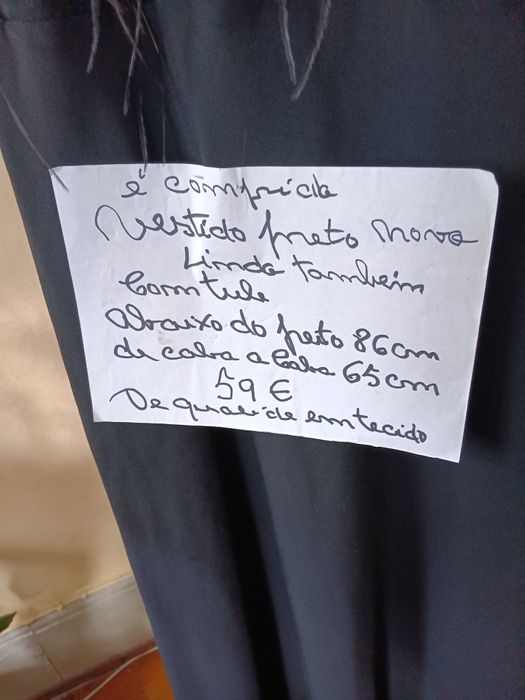 é comprida
Vestido preto novo
Linda também
Com tule
Abaixo do peito 86cm
de cava a Cava 65cm
59 €
De qualide em tecido